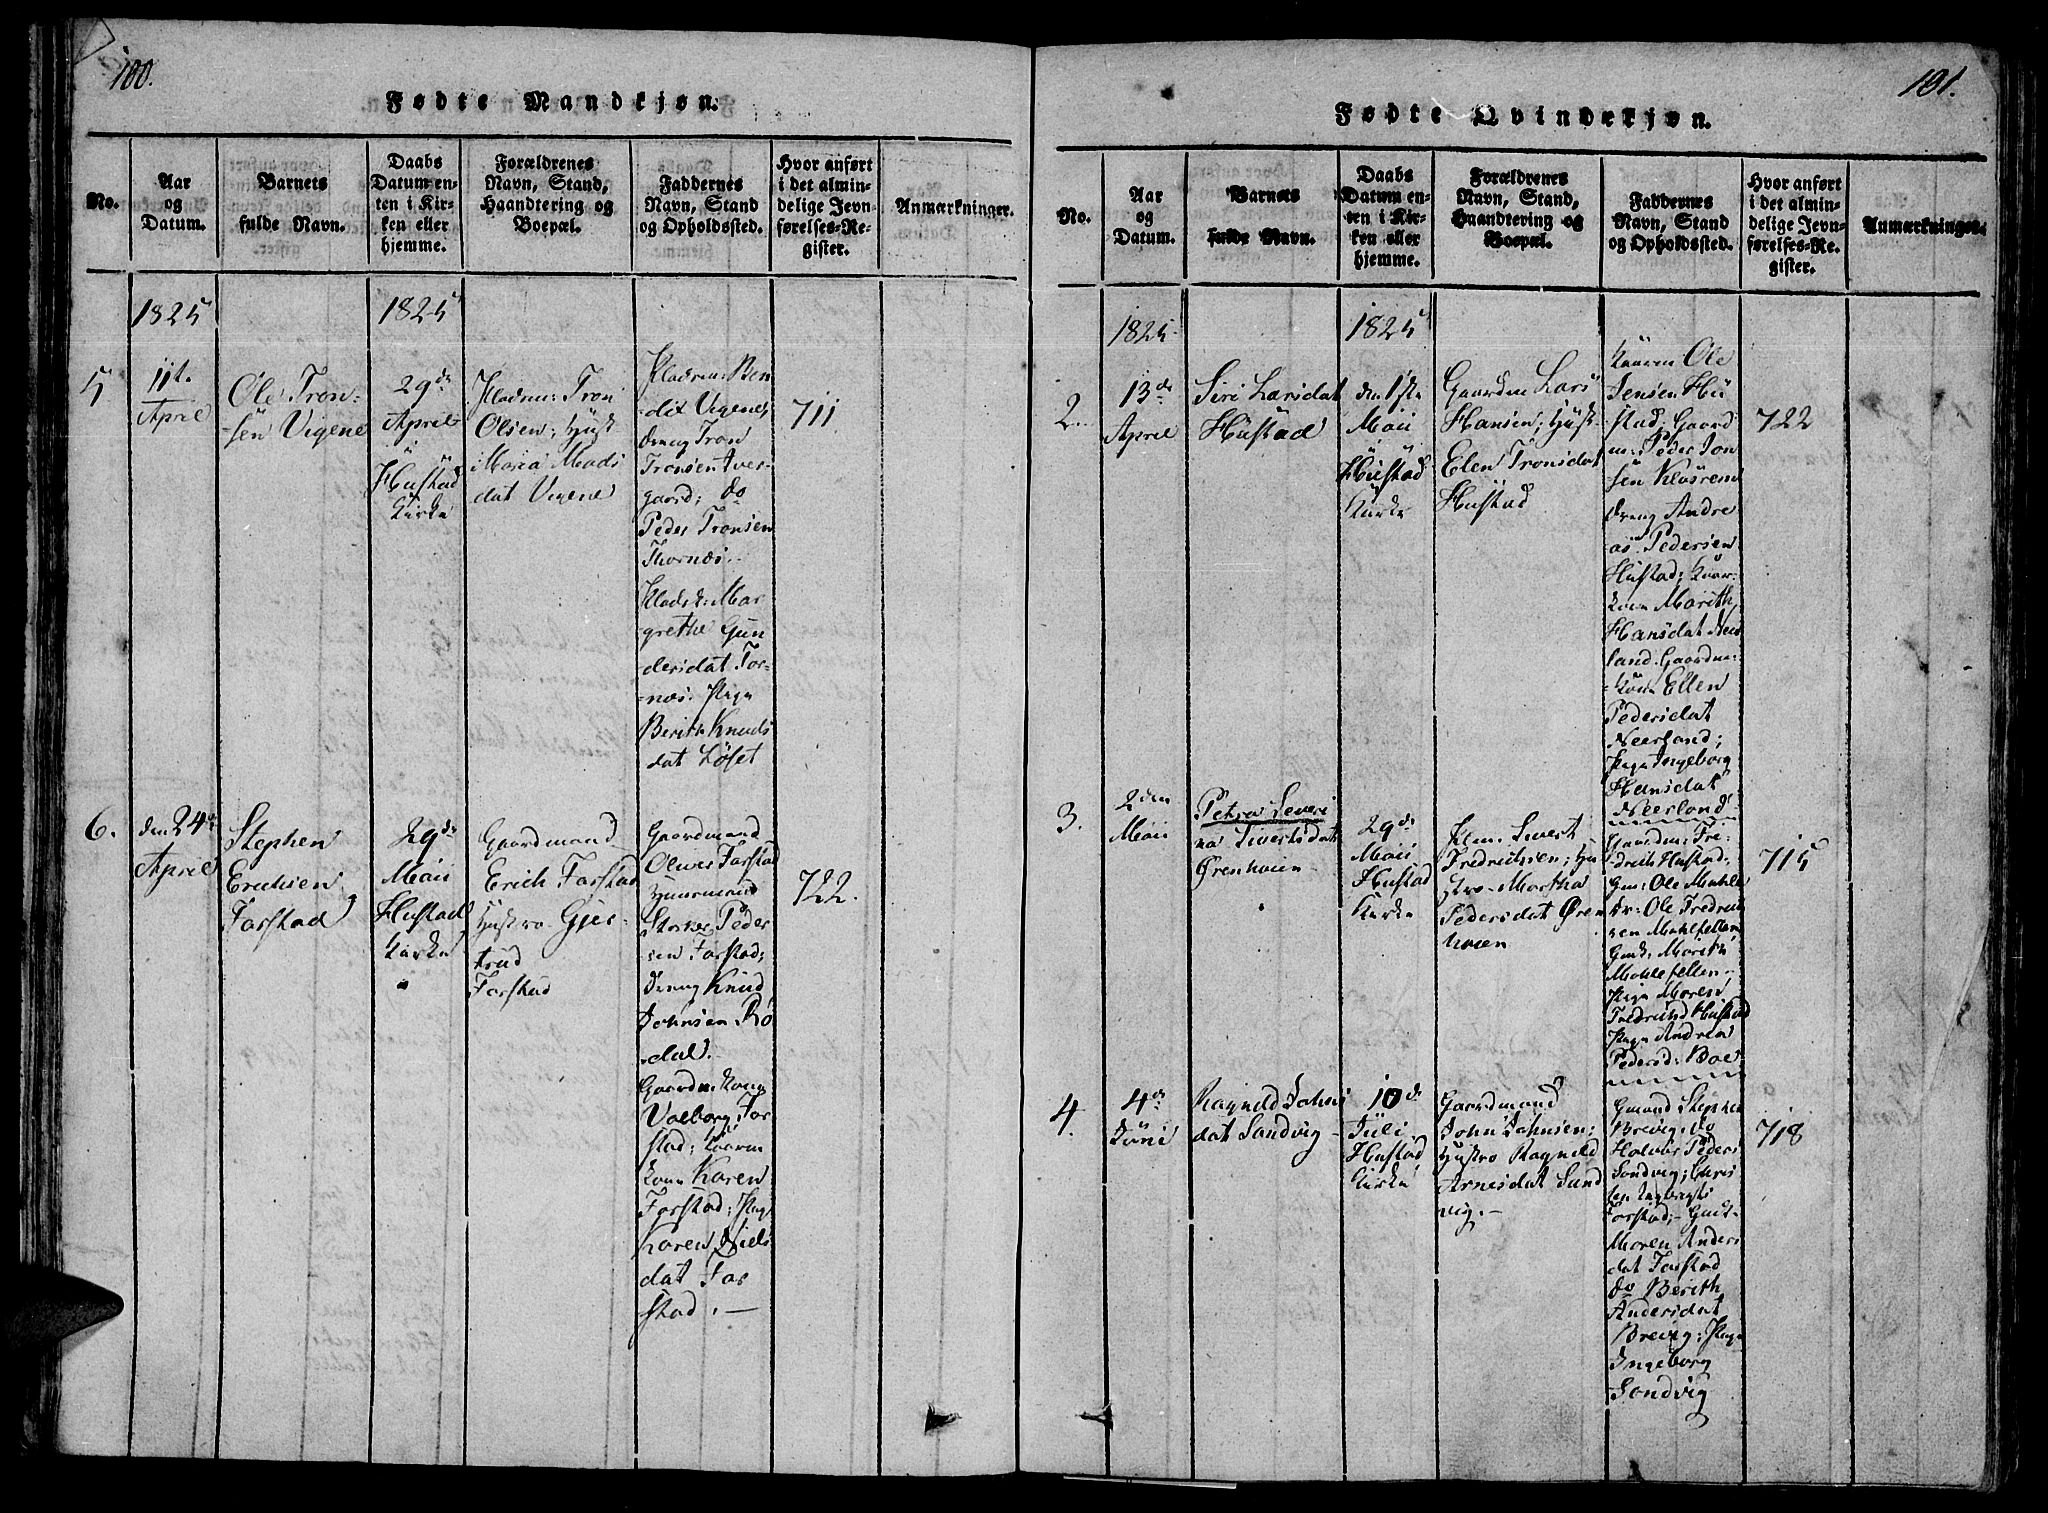 100.
Fødte Mandkjøn.
No.
Aar
og
Datum.
Barnets
fulde Navn.
Daabs
Datum en-
ten i Kir-
ken eller
hjemme.
Forældrenes
Navn, Stand,
Haandtering og
Boepæl.
Faddernes
Navn, Stand
og Opholdssted.
Hvor anført
i det almin-
delige Jevn-
førelses-Re-
gister.
Anmærkninger.
1825
1825
5
11t.
April
Ole Tron-
sen Vigene
29de
April
Hustad
Kirke
Pladsm: Tron
Olsen; Hust
Maria Mads
dat Vigene
Pladsm: Ben
dix Vigene,
dreng Tron
Tronsen Aver-
gaard; do
Peder Tronsen
Thornæs.
Pladsk: Mar
grethe Gun
dersdat Tor-
næs. Pige
Berith Knuds
dat Löset
711
6.
den 24de
April
Stephen
Erichsen
Farstad
29de
Maii
Hustad
Kirke
Gaardmand
Erich Farstad
Hustro Gjer-
trud
Farstad
Gaardmand
Oliver Farstad
Huusmand
Peder
sen Farstad;
dreng Knud
Johnsen Rö
dal.
Gaardm: kone
Valborg Far
stad; Kaarm
kone Karen
Farstad; Pige
Karen Niels
dat Far
stad. —
722.
101.
Fødte Qvindekjøn.
No.
Aar
og
Datum.
Barnets
fulde Navn.
Daabs
Datum en-
ten i Kir-
ken eller
hjemme.
Forældrenes
Navn, Stand,
Haandtering og
Boepæl.
Faddernes
Navn, Stand
og Opholdssted.
Hvor anført
i det almin-
delige Jevn-
førelses-Re-
gister.
Anmærkninger.
1825
1825
2.
13de
April
Siri Larsdat
Hustad
den 1ste
Maii
Hustad
Kirke
Gaardm Lars
Hansen; Hust
Elen Tronsdat
Hustad
Kaarm Ole
Jensen Hu
stad; Gaard
m: Peder Jon
sen
dreng Andre
as Pedersen
Hustad; Kaar-
kone Marith
Hansdat Neer
land. Gaardm-
kone Ellen
Pedersdat
Neerland;
Pige Ingeborg
Hansdat
Neerland
722
3.
2den
Maii
Petra Severi
na Sivertsdat
Ørenhaien
29de
Maii
Hustad
Kirke
Sivert
Fredrichsen; Hu
stro Martha
Pedersdat Øren
haien
Gaardm: Fre-
drich Hustad;
Ole Mahle
dr: Ole Fredrich
sen Mahlefellen
Marith
Mahlefellen
Pige Maren
Hustad
Pige Andrea
Pedersd: Boe
715
4.
4de
Juni
Ragnild Johns
dat Sandvig
10de
Juli
Hustad
Kirke
Gaardmand
John Johnsen;
Hustro Ragnild
Arnesdat Sand
vig. —
Gmand Stephen
Brevig; do
Halvor Peders
Sandvig;
Farstad;
Maren Anders
dat Farstad
do Berith
Andersdat
Brevig; Pige
Ingeborg
Sandvig
718